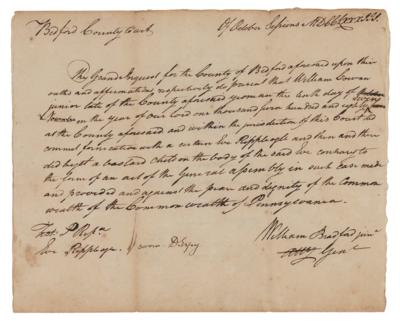 Bedford County Court Of October Sessions
The Grand Inquest for the County of Bedford aforesaid upon their
oaths and affirmations respectively do present that William Cowan
junior late of the County aforesaid yeoman the tenth day of
in the year of our Lord one thousand seven hundred and eighty
at the County aforesaid and within the jurisdiction of this Court did
commit fornication with a certain Eve Reppleogle and then and there
did beget a bastard child on the body of the said Eve contrary to
the form of an act of the General assembly in such case made
and provided and against the peace and dignity of the Common
wealth of the Common wealth of Pennsylvania.
William Bradford junr.
Atty Genl
Eve Reppleogle